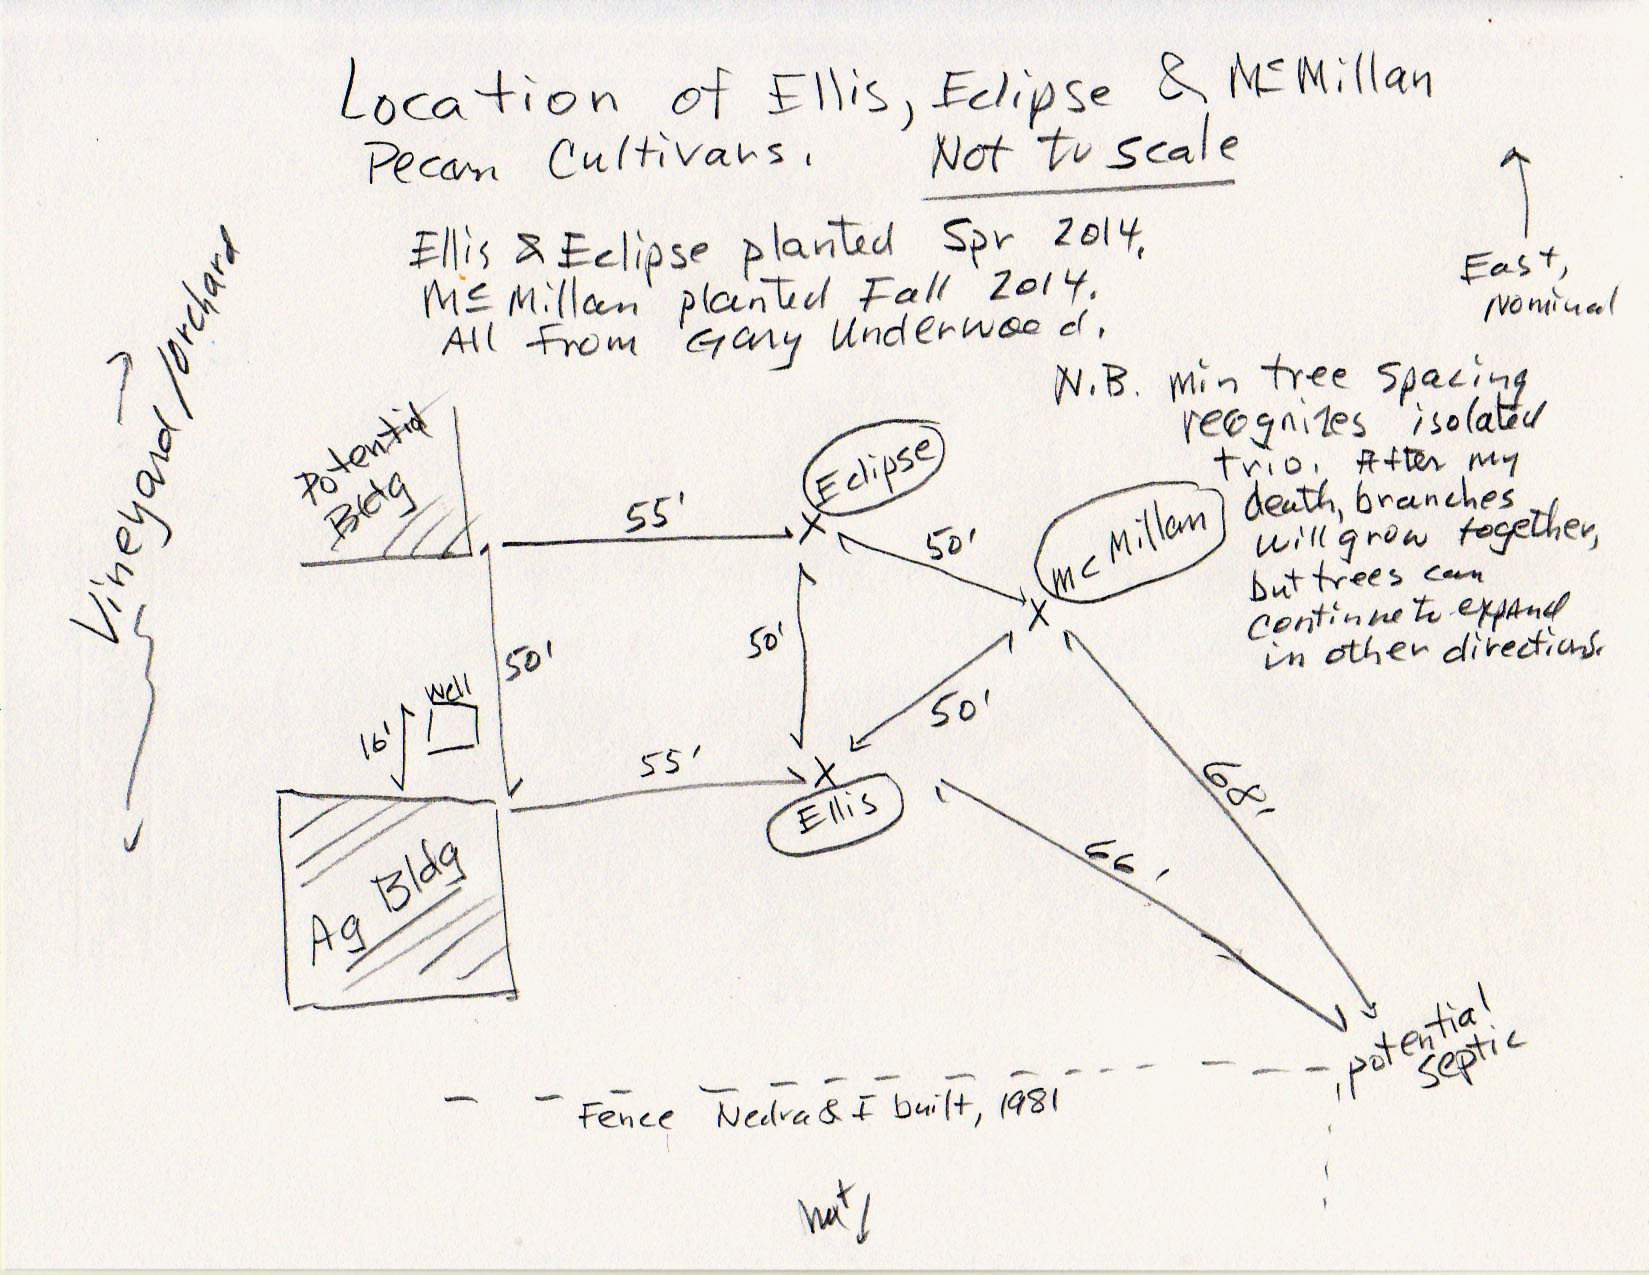 Location of Ellis, Eclipse & McMillan
Pecan Cultivars. Not to scale
Ellis & Eclipse planted Spr 2014.
McMillan planted Fall 2014.
All from Gary Underwood.
East,
Nominal
N.B. min tree spacing
recognizes isolated
trio. After my
death, branches
will grow together,
but trees can
continue to expand
in other directions.
Vineyard/orchard
Potential
Bldg
55'
Eclipse
50'
McMillan
50'
50'
50'
Well
16'
55'
Ellis
68'
66'
Ag Bldg
potential
septic
Fence Nedra & I built, 1981